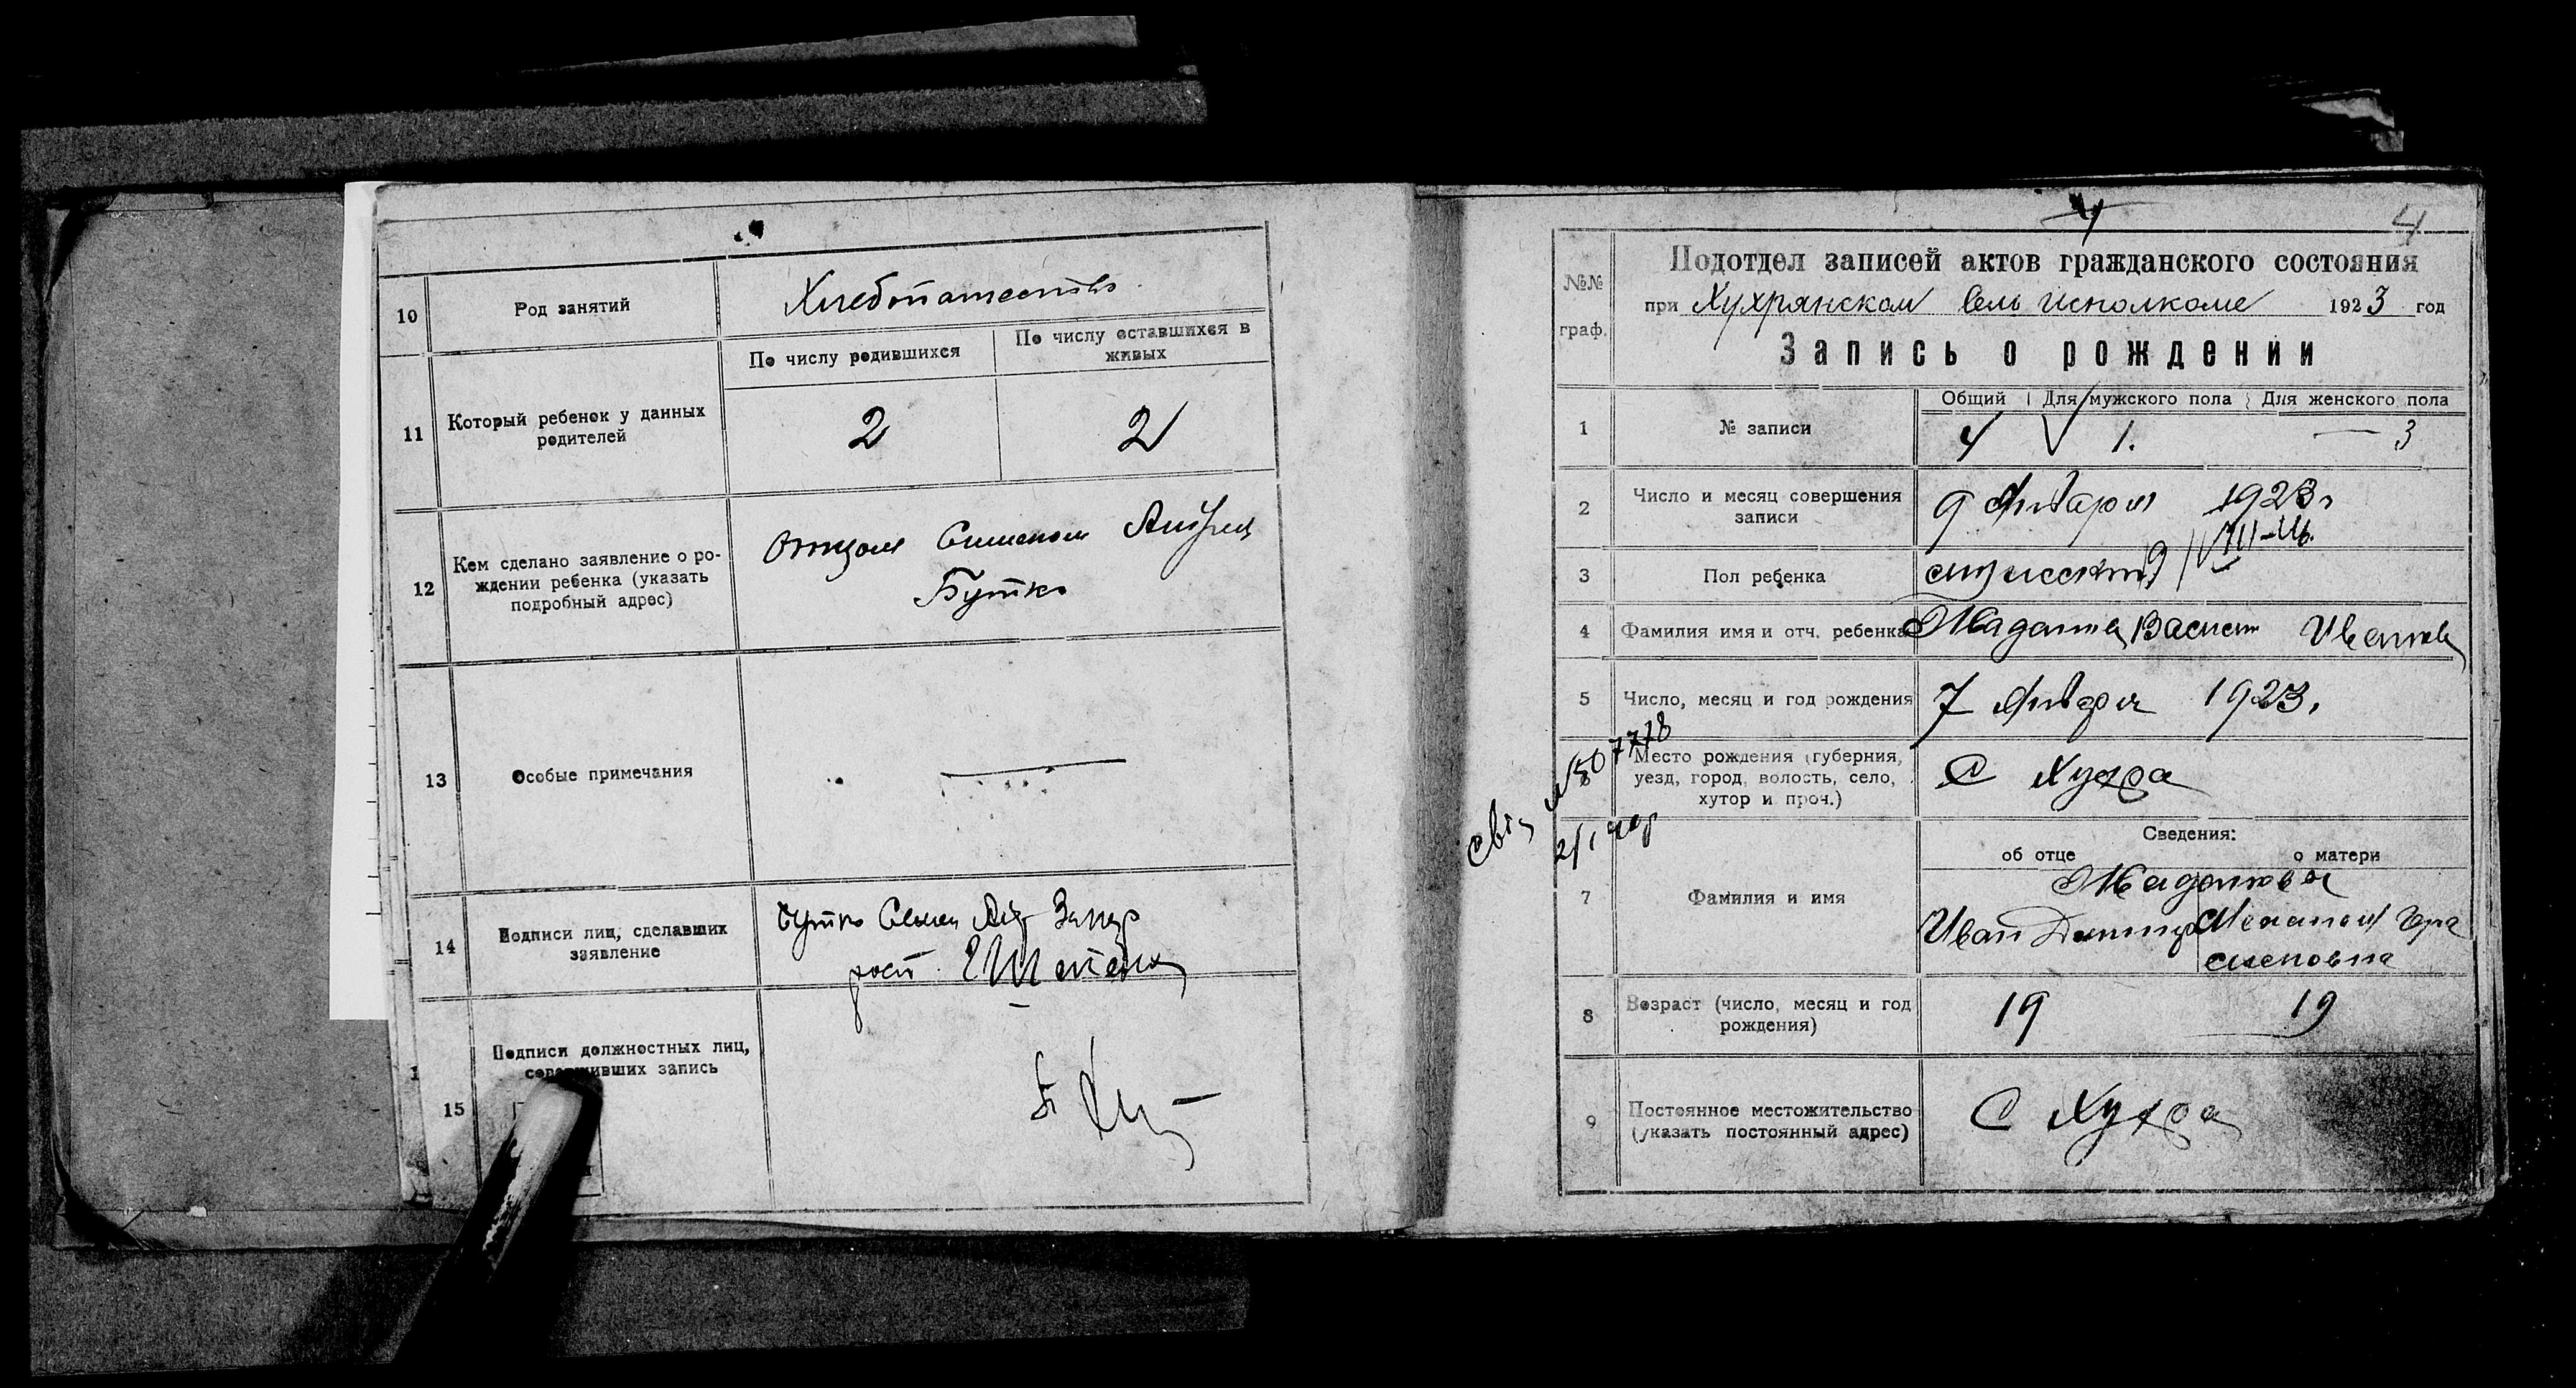 10
Род занятий
Хлебопашество
11
Который ребенок у данных
родителей
По числу родившихся
По числу оставшихся в
живых
2
2
12
Кем сделано заявление о ро-
ждении ребенка (указать
подробный адрес)
Отцом
Бутко
13
Особые примечания
14
Подписи лиц, сделавших
заявление
Бутко
15
Подписи должностных лиц,
совершивших запись
4
4
№№
граф.
Подотдел записей актов гражданского состояния
при Хухрянском Сель исполкоме 1923 год
Запись о рождении
1
№ записи
Общий
Для мужского пола
Для женского пола
4
1.
3
2
Число и месяц совершения
записи
9 Января 1923
3
Пол ребенка
мужский
4
Фамилия имя и отч. ребенка
Иванов
5
Число, месяц и год рождения
7 Января 1923.
Место рождения (губерния,
уезд, город, волость, село,
хутор и проч.)
С Хухра
7
Фамилия и имя
Сведения:
об отце
о матери
Иван
8
Возраст (число, месяц и год
рождения)
19
19
9
Постоянное местожительство
(указать постоянный адрес)
С Хухра